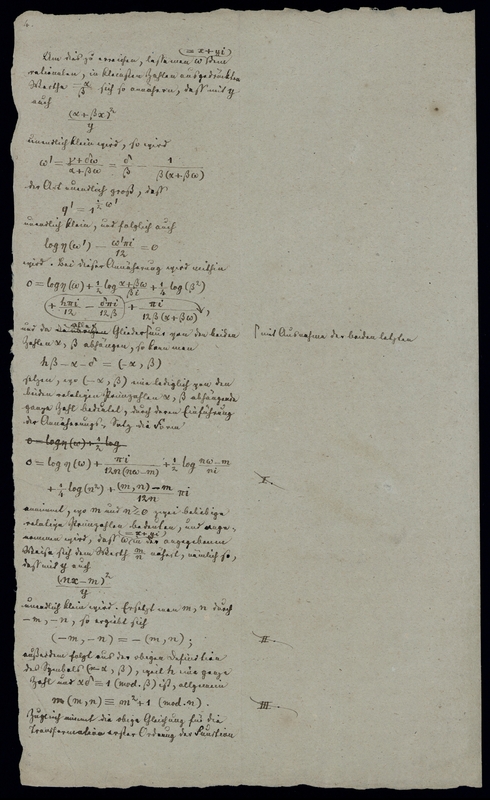 4.
(= x + yi)
Um dies zu erreichen, lasse man ω dem
rationalen, in kleinsten Zahlen ausgedrückten
Werthe -α/β sich so annähern, dass mit y
auch
(α + βx)²/y
unendlich klein wird, so wird
ω' = (γ + δω)/(α + βω) = δ/β - 1/(β(α + βω))
der Art unendlich groß, dass
q' = 1^(½ω')
unendlich klein, und folglich auch
log η(ω') - ω'πi/12 = 0
wird. Bei dieser Annäherung wird mithin
0 = log η(ω) + ½ log (α+βω)/βi + ¼ log (β²)
(+ hπi/12 - δπi/12β) + πi/(12β(α+βω)),
und da die Glieder nur von den beiden ⌈ mit Ausnahme der beiden letzten
Zahlen α, β abhängen, so kann man
hβ - α - δ = (-α, β)
setzen, wo (-α, β) eine lediglich von den
beiden relativen Primzahlen α, β abhängende
ganze Zahl bedeutet, durch deren Einführung
der Annäherungs-Satz die Form
0 = log η(ω) + ½ log
0 = log η(ω) + πi/(12n(nω-m)) + ½ log (nω-m)/ni
+ ¼ log (n²) + ((m, n) - m)/12n πi I.
annimmt, wo m und n ≷ 0 zwei beliebige
relative Primzahlen bedeuten, und ange-
(= x + yi)
nommen wird, dass ω in der angegebenen
Weise sich dem Werth m/n nähert, nämlich so,
dass mit y auch
(nx - m)²/y
unendlich klein wird. Ersetzt man m, n durch
-m, -n, so ergiebt sich
(-m, -n) = -(m, n); II.
außerdem folgt aus der obigen Definition
des Symbols (-α, β), weil h eine ganze
Zahl und αδ ≡ 1 (mod. β) ist, allgemein
m(m, n) ≡ m² + 1 (mod. n). III.
Zugleich nimmt die obige Gleichung für die
Transformation erster Ordnung der Function